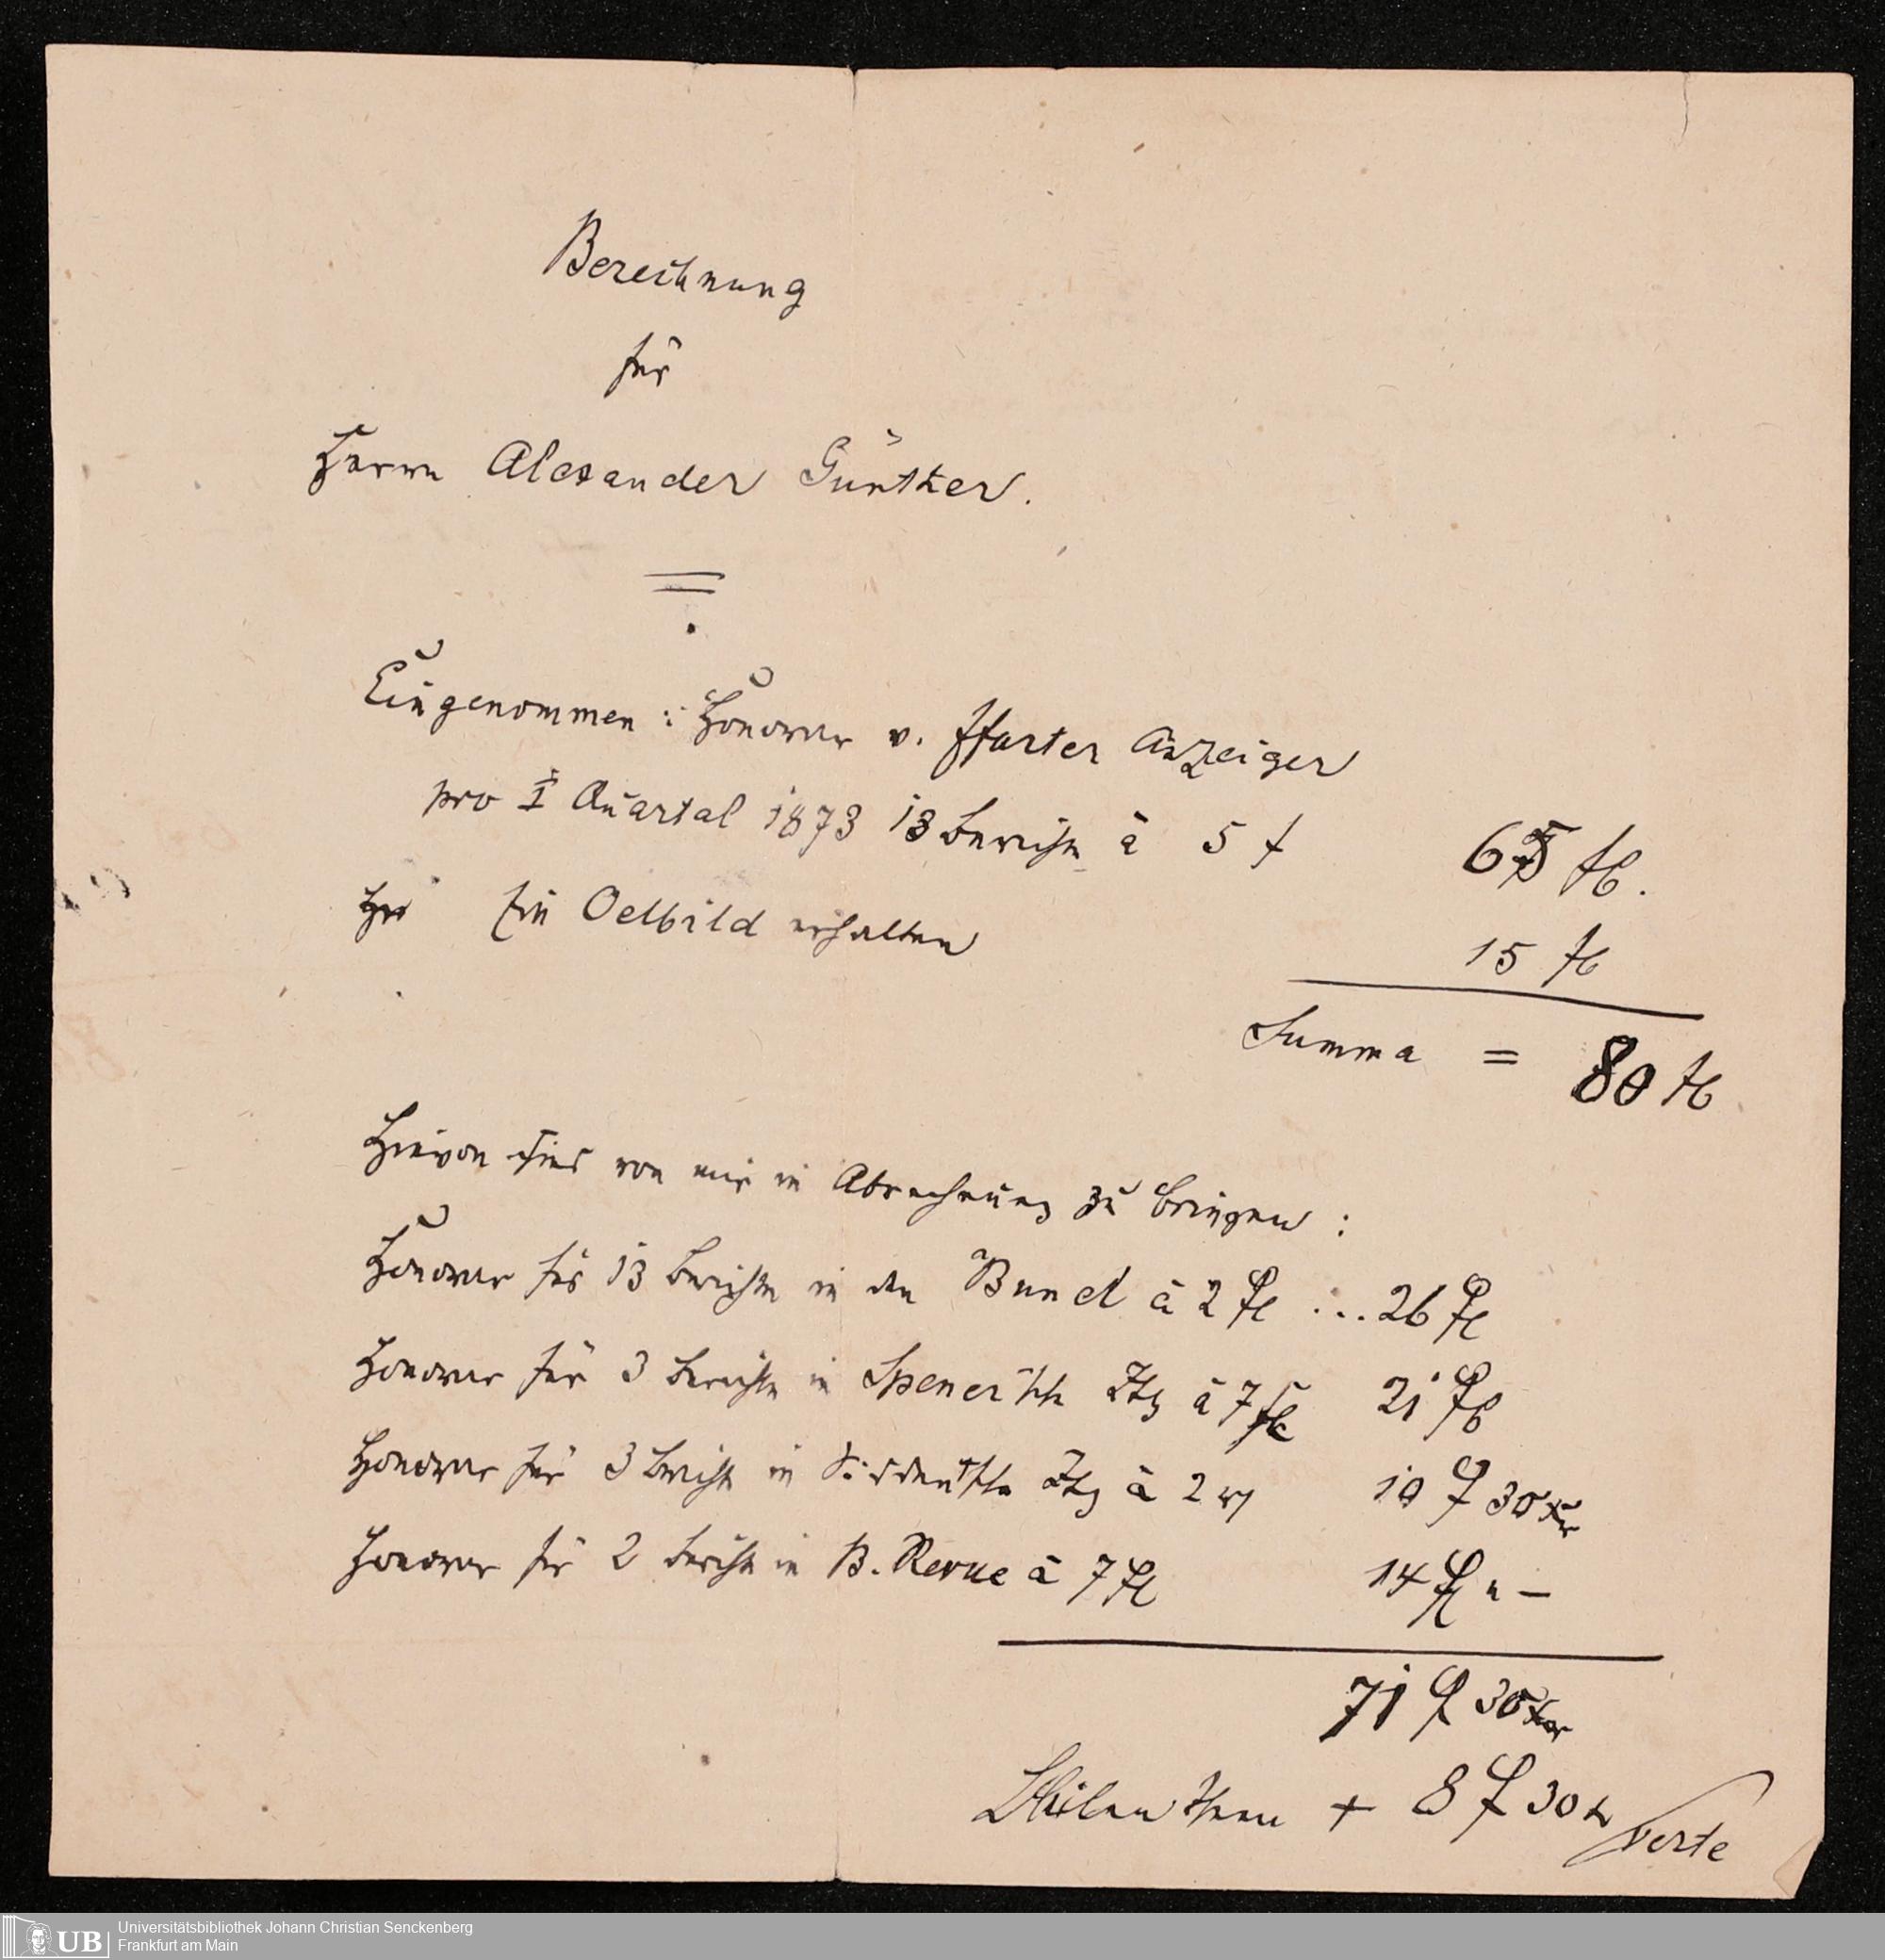 Berechnung
für
Herrn Alexander Günther.
Eingenommen: Honorar v. Ffurter Anzeiger
pro I Quartal 1873 13 Berichte à 5 f 65 fl.
Ein Oelbild erhalten 15 fl
Summa = 80 fl
Hievon sind von mir in Abrechnung zu bringen:
Honorar für 13 Berichte in den Bund à 2 fl ... 26 fl
Honorar für 3 Berichte in Spener'sch Ztg à 7 fl 21 fl
Honorar für 3 Berichte in Süddeutsche Ztg à 2 10 f 30 Kr
Honorar für 2 Berichte in B. Revue à 7 fl 14 fl " —
71 f 30 Kr
+ 8 f 30
verte
UB
Universitätsbibliothek Johann Christian Senckenberg
Frankfurt am Main